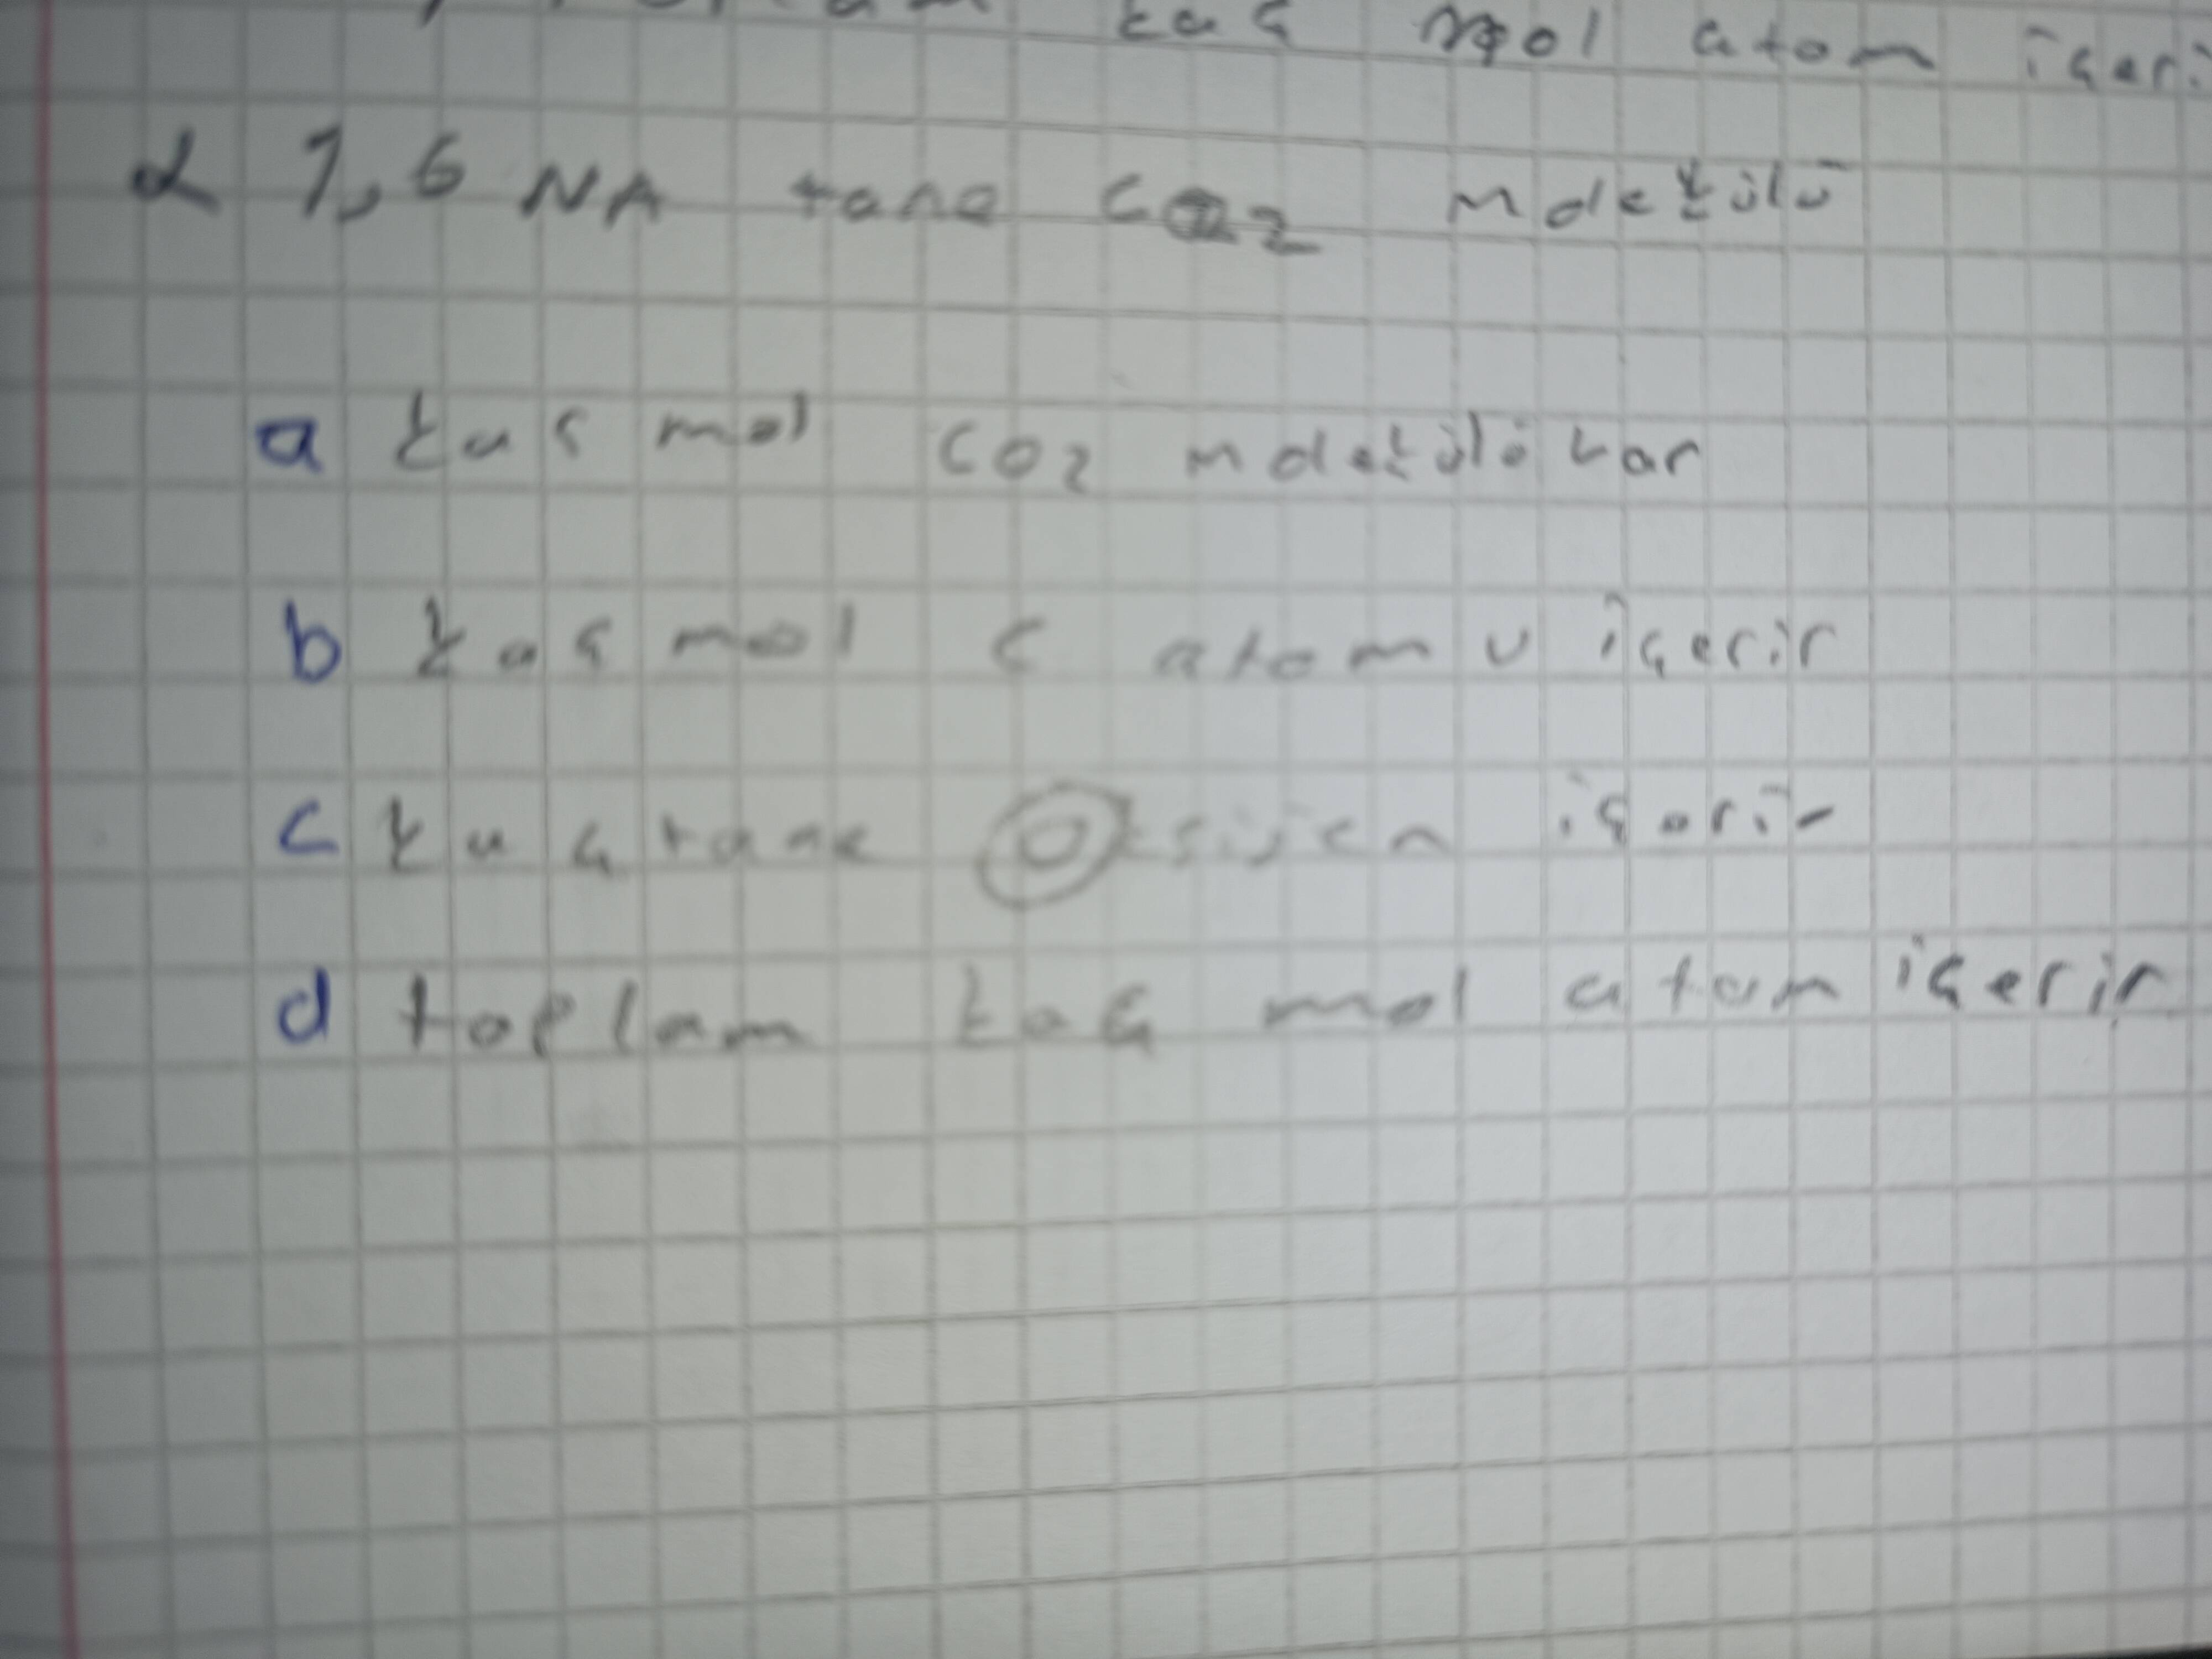 kaç mol atom içeri
2 1,6 NA tane CO2 molekülü
a kaç mol CO2 molekülü var
b kaç mol C atomu içerir
c kaç tane Oksijen içerir
d toplam kaç mol atom içerir